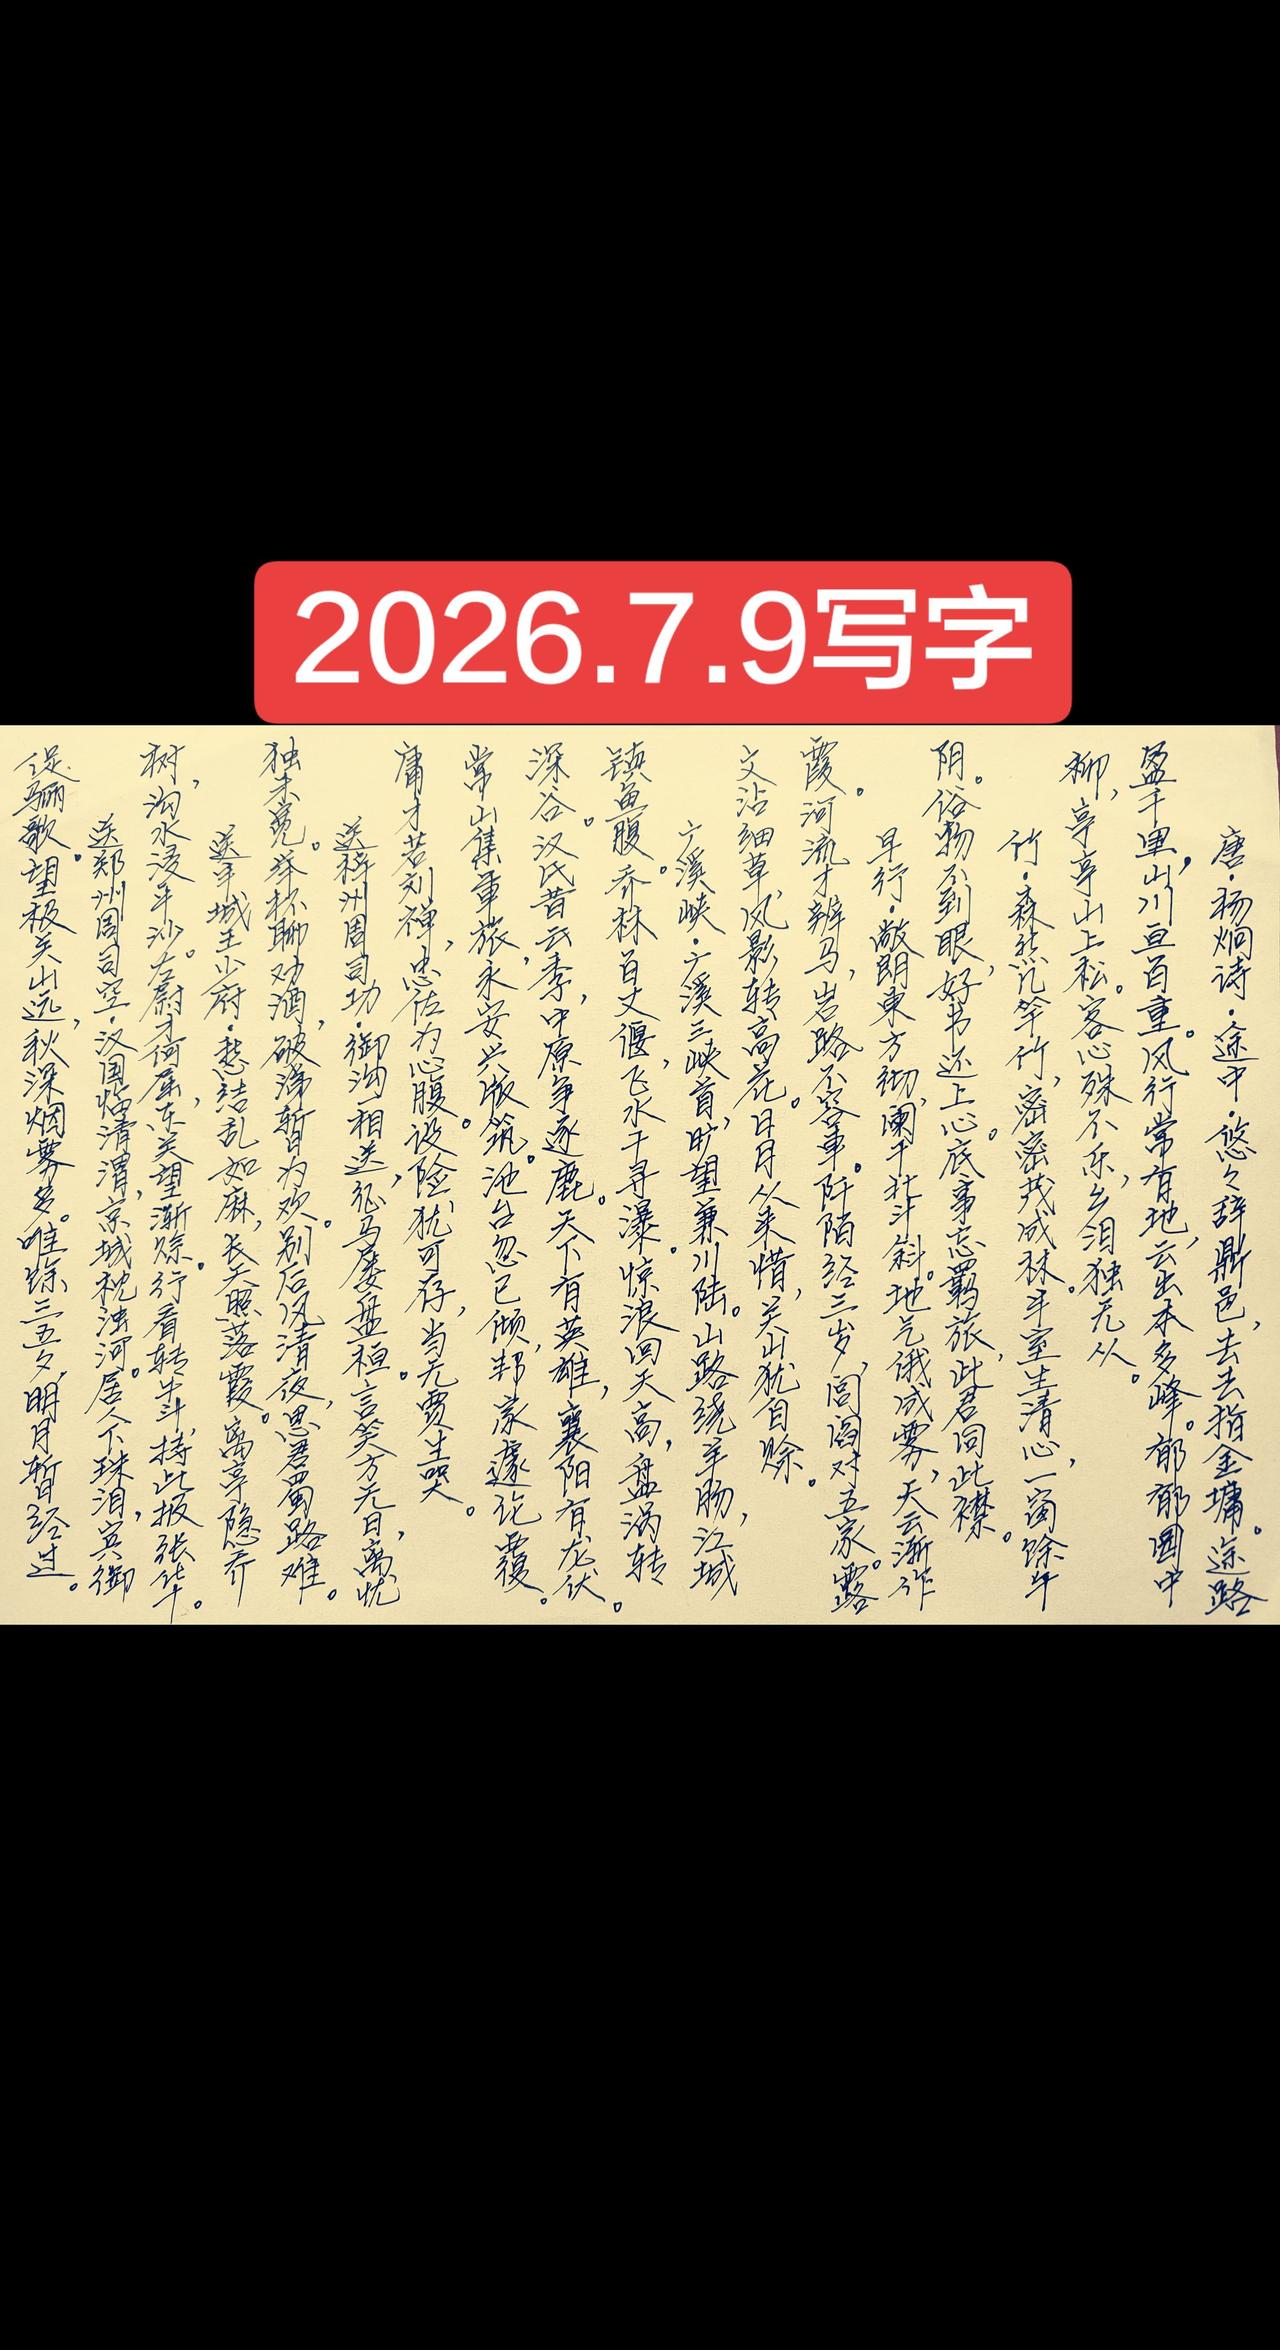 2026.7.9写字
唐·杨炯诗·途中·悠々辞鼎邑，去去指金墉。途路
盈千里，山川亘百重。风行常有地，云出本多峰。郁郁园中
柳，亭亭山上松。客心殊不乐，乡泪独无从。
竹·森然几竿竹，密密茂成林。半室生清心，一窗余午
阴。俗物不到眼，好书还上心。底事忘羁旅，此君同此襟。
早行·敞朗东方彻，阑干北斗斜。地气俄成雾，天云渐作
霞。河流才辨马，岩路不容车。阡陌经三岁，闾阎对五家。露
文沾细草，风影转高花。日月从来惜，关山犹自赊。
广溪峡·广溪三峡首，旷望兼川陆。山路绕羊肠，江城
镇鱼腹。乔林百丈偃，飞水千寻瀑。惊浪回天高，盘涡转
深谷。汉氏昔云季，中原争逐鹿。天下有英雄，襄阳有龙伏。
常山集军旅，永安兴版筑。池台忽已倾，邦家遽论覆。
庸才若刘禅，忠佐为心腹。设险犹可存，当无贾生哭。
送梓州周司功·御沟一相送，征马屡盘桓。言笑方无日，离忧
独未宽。举杯聊劝酒，破涕暂为欢。别后风清夜，思君蜀路难。
送丰城王少府·愁结乱如麻，长天照落霞。离亭隐乔
树，沟水浸平沙。左尉才何屈，东关望渐赊。行看转牛斗，持此报张华。
送郑州周司空·汉国临清渭，京城枕浊河。居人下珠泪，宾御
促骊歌。望极关山远，秋深烟雾多。唯余三五夕，明月暂经过。